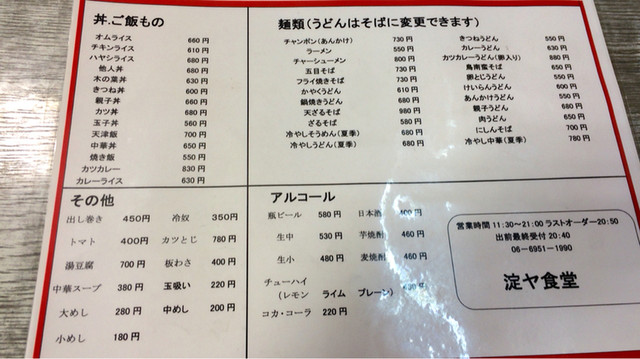 丼.ご飯もの
オムライス 660円
チキンライス 610円
ハヤシライス 680円
他人丼 680円
木の葉丼 630円
きつね丼 600円
親子丼 660円
カツ丼 680円
玉子丼 560円
天津飯 700円
中華丼 650円
焼き飯 550円
カツカレー 830円
カレーライス 630円
麺類(うどんはそばに変更できます)
チャンポン(あんかけ) 730円
ラーメン 550円
チャーシューメン 800円
五目そば 730円
フライ焼きそば 730円
かやくうどん 610円
鍋焼きうどん 660円
天ざるそば 980円
ざるそば 580円
冷やしそうめん(夏季) 680円
冷やしうどん(夏季) 680円
きつねうどん 550円
カレーうどん 630円
カツカレーうどん(卵入り) 880円
鳥南蛮そば 650円
卵とじうどん 550円
けいらんうどん 600円
あんかけうどん 550円
親子うどん 680円
肉うどん 650円
にしんそば 700円
冷やし中華(夏季) 780円
その他
出し巻き 450円 冷奴 350円
トマト 400円 カツとじ 780円
湯豆腐 700円 板わさ 400円
中華スープ 380円 玉吸い 220円
大めし 280円 中めし 200円
小めし 180円
アルコール
瓶ビール 580円 日本酒 400円
生中 530円 芋焼酎 460円
生小 480円 麦焼酎 460円
チューハイ
(レモン ライム プレーン)
コカ・コーラ 220円
営業時間 11:30~21:00 ラストオーダー20:50
出前最終受付 20:40
06-6951-1990
淀ヤ食堂